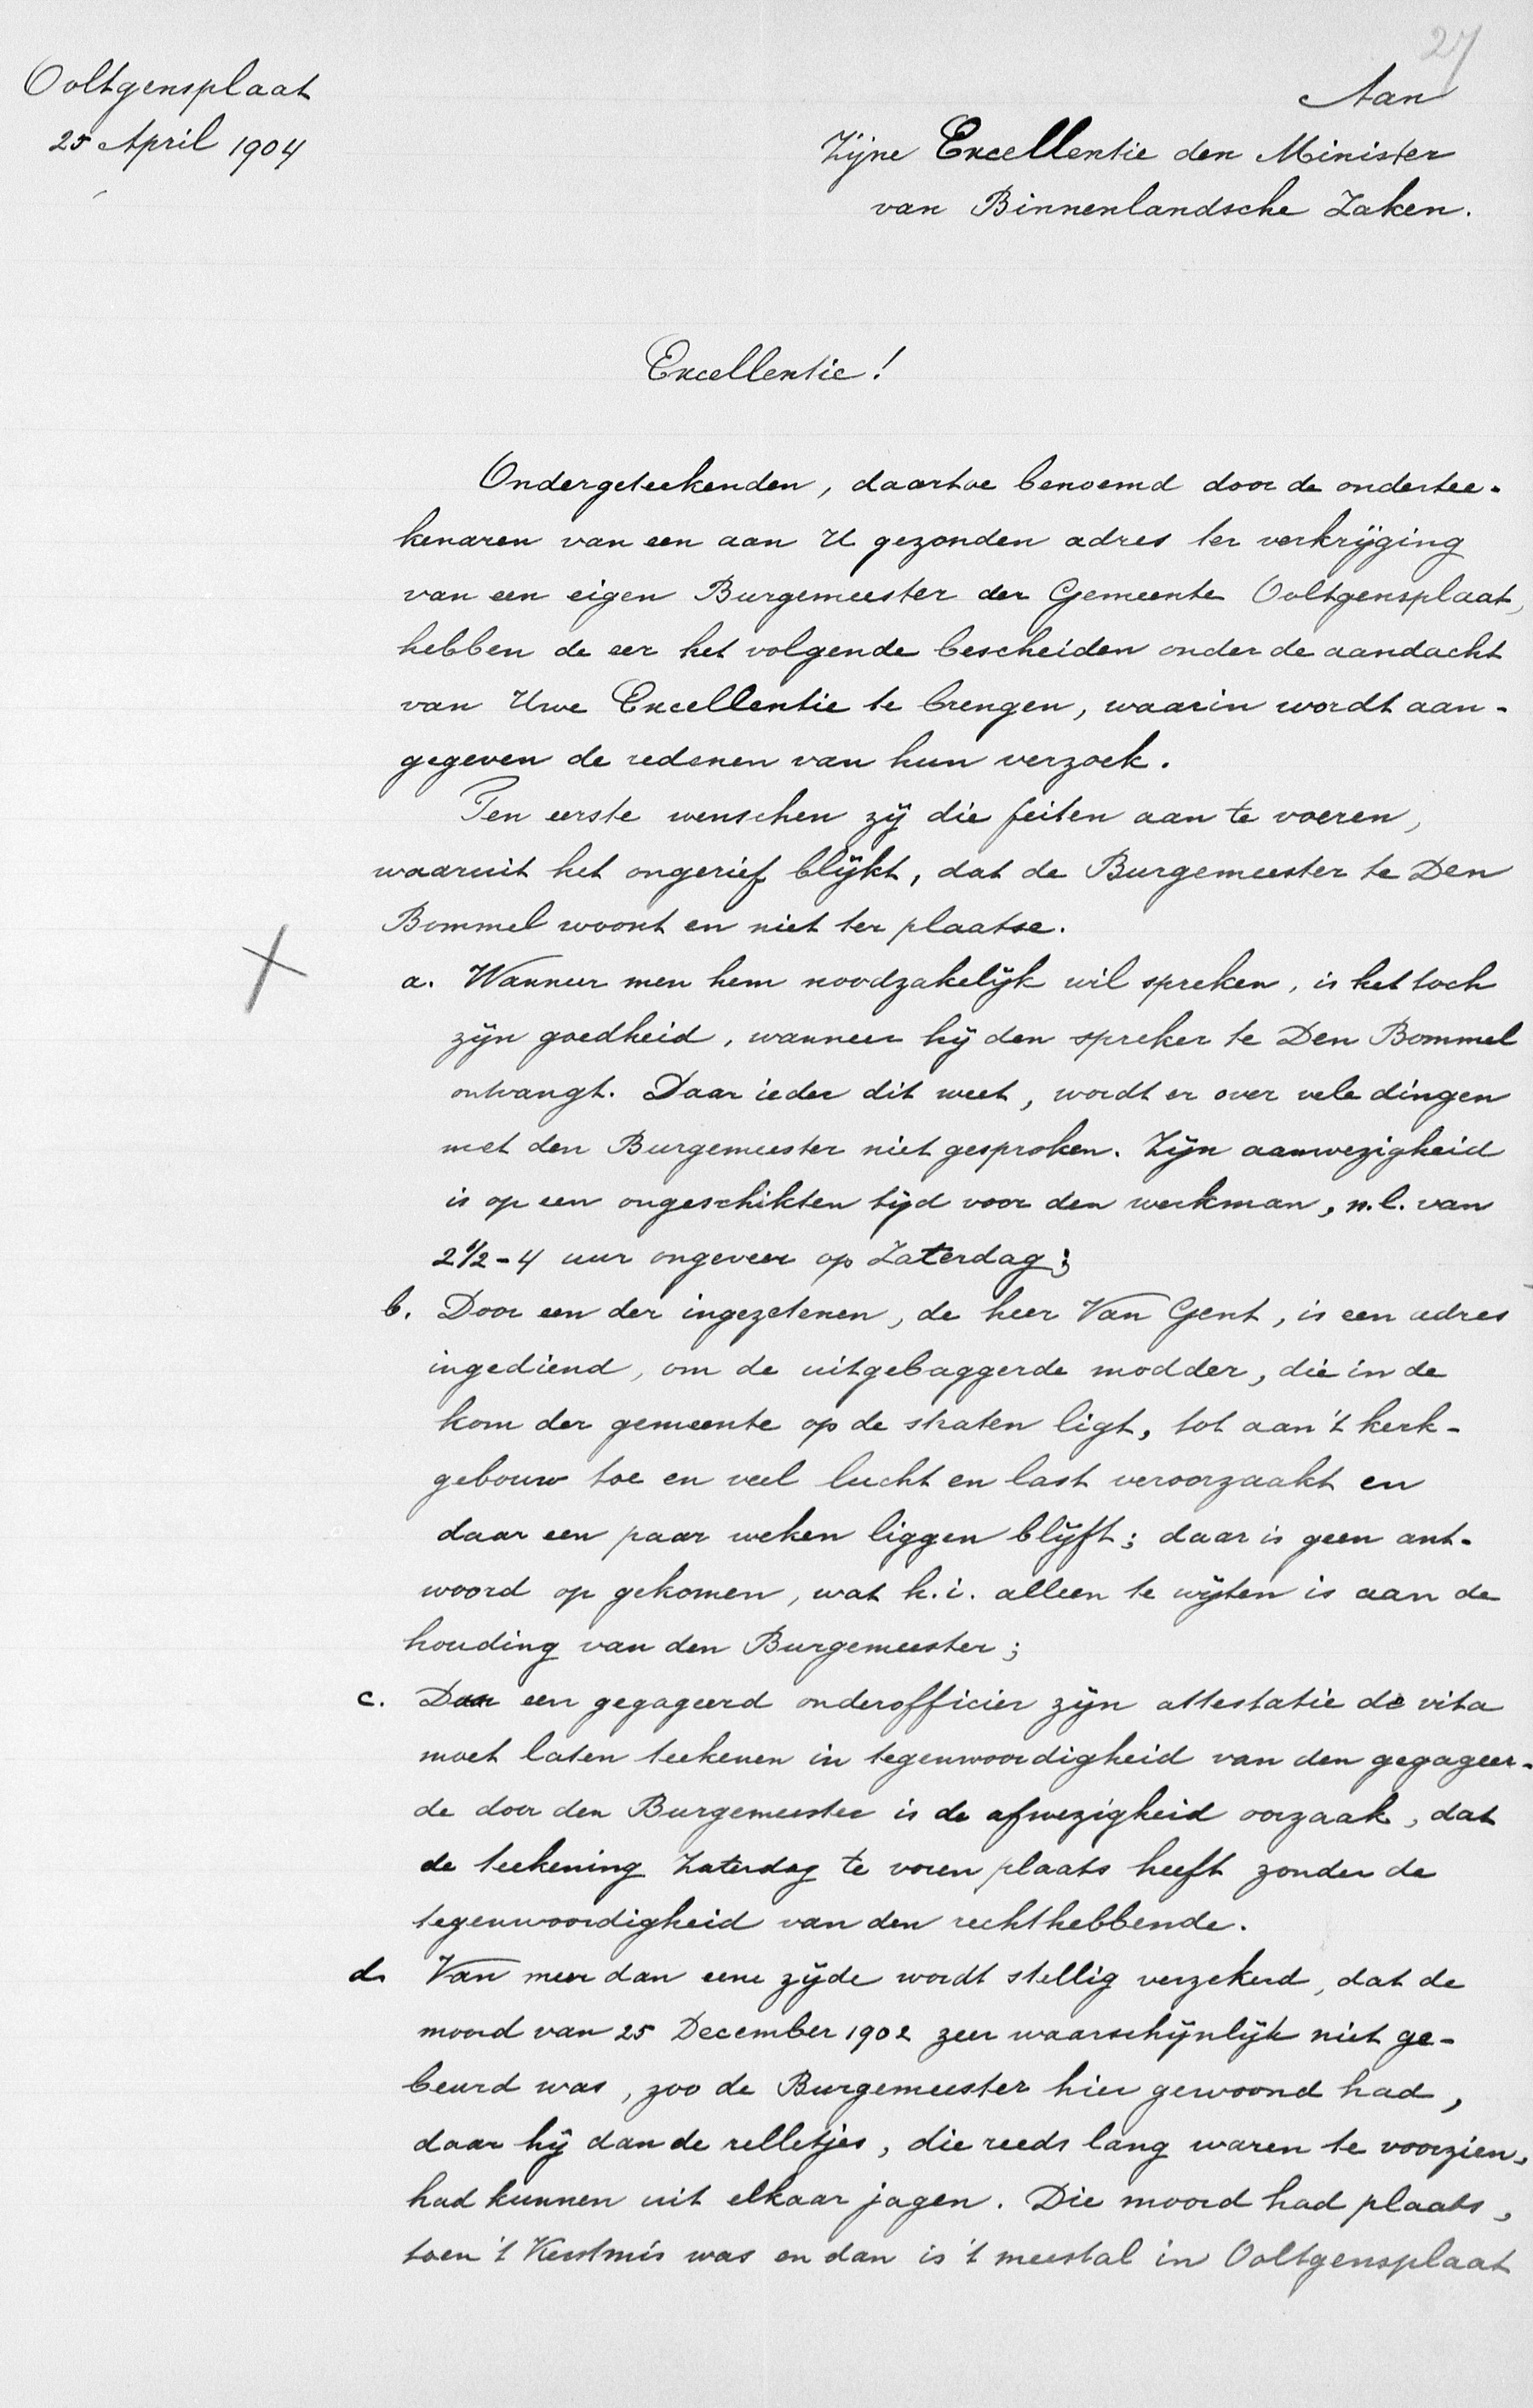 27
Ooltgensplaat
25 April 1904
Aan
Zijne Excellentie den Minister
van Binnenlandsche Zaken.
Excellentie!
Ondergeteekenden, daartoe benoemd door de ondertee-
kenaren van een aan U gezonden adres ter verkrijging
van een eigen Burgemeester der Gemeente Ooltgensplaat,
hebben de eer het volgende bescheiden onder de aandacht
van Uwe Excellentie te brengen, waarin wordt aan-
gegeven de redenen van hun verzoek.
Ten eerste wenschen zij die feiten aan te voeren,
waaruit het ongerief blijkt, dat de Burgemeester te Den
Bommel woont en niet ter plaatse.
a. Wanneer men hem noodzakelijk wil spreken, is het toch
zijn goedheid, wanneer hij den spreker te Den Bommel
ontvangt. Daar ieder dit weet, wordt er over vele dingen
met den Burgemeester niet gesproken. Zijn aanwezigheid
is op een ongeschikten tijd voor den werkman, n.l. van
2 1/2 - 4 uur ongeveer op Zaterdag;
b. Door een der ingezetenen, de heer Van Gent, is een adres
ingediend, om de uitgebaggerde modder, die in de
kom der gemeente op de straten ligt, tot aan 't kerk-
gebouw toe en veel lucht en last veroorzaakt en
daar een paar weken liggen blijft; daar is geen ant-
woord op gekomen, wat h.i. alleen te wijten is aan de
houding van den Burgemeester;
c. Daar een gegageerd onderofficier zijn attestatie de vita
moet laten teekenen in tegenwoordigheid van den gegageer-
de door den Burgemeester is de afwezigheid oorzaak, dat
de teekening Zaterdag te voren plaats heeft zonder de
tegenwoordigheid van den rechthebbende.
d. Van meer dan eene zijde wordt stellig verzekerd, dat de
moord van 25 December 1902 zeer waarschijnlijk niet ge-
beurd was, zoo de Burgemeester hier gewoond had,
daar hij dan de relletjes, die reeds lang waren te voorzien,
had kunnen uit elkaar jagen. Die moord had plaats,
toen 't Kerstmis was en dan is 't meestal in Ooltgensplaat